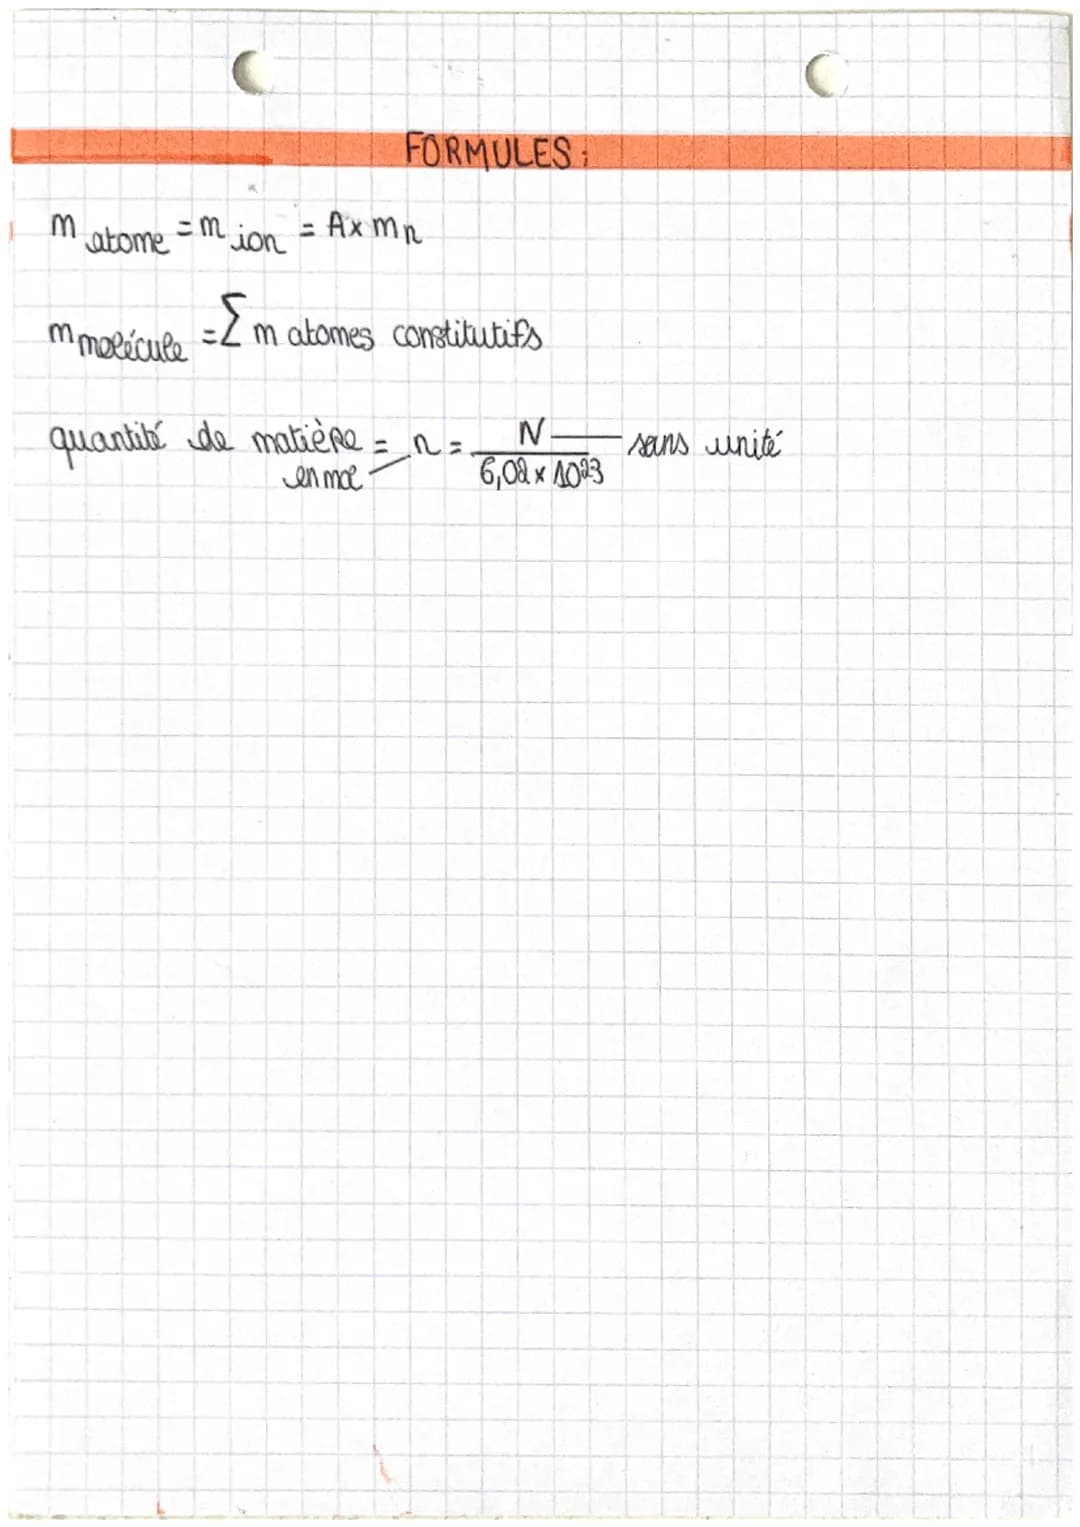 FORMULES :
m atome = m ion = A x mn
m molécule = Σ m atomes constitutifs
quantité de matière = n = N / 6,02 x 10²³ sans unité
en mol